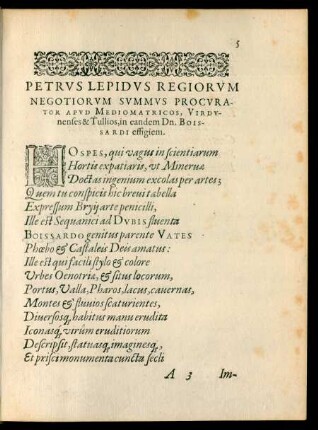 5
PETRVS LEPIDVS REGIORVM
NEGOTIORVM SVMMVS PROCVRA-
TOR APVD MEDIOMATRICOS, VIRDV-
nenses & Tullios, in eandem Dn. BOIS-
SARDI effigiem.
HOSPES, qui vagus in scientiarum
Hortis expatiaris, vt Minerua
Doctas ingenium excolas per artes;
Quem tu conspicis hic breui tabella
Expressum Bryij arte penicilli,
Ille est Sequanici ad DVBIS fluenta
BOISSARDO genitus parente VATES
Phœbo & Castaleis Deis amatus:
Ille est qui facili stylo & colore
Vrbes Oenotriæ, & situs locorum,
Portus, Valla, Pharos, lacus, cauernas,
Montes & fluuios scaturientes,
Diuersosq, habitus manu erudita
Iconasq, virûm eruditiorum
Descripsit, statuasq, imaginesq,,
Et prisci monumenta cuncta secli
A 3 Im-